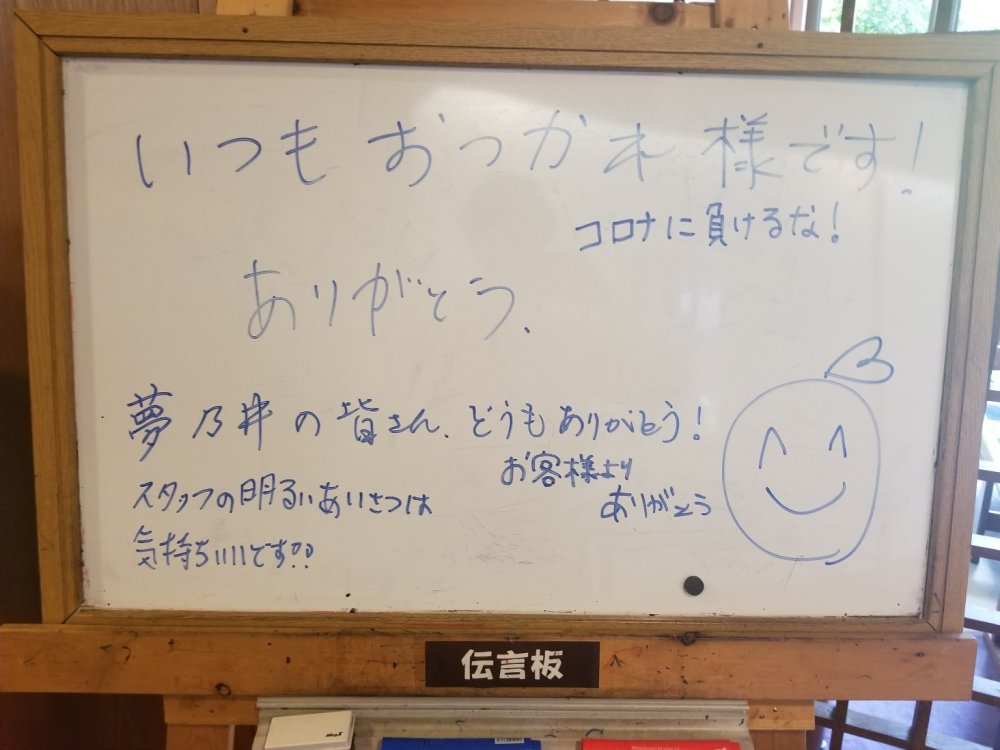 いつもおつかれ様です!
コロナに負けるな!
ありがとう.
夢乃井の皆さん、どうもありがとう!
お客様より
ありがとう
スタッフの明るいあいさつは
気持ちいいです!!
伝言板